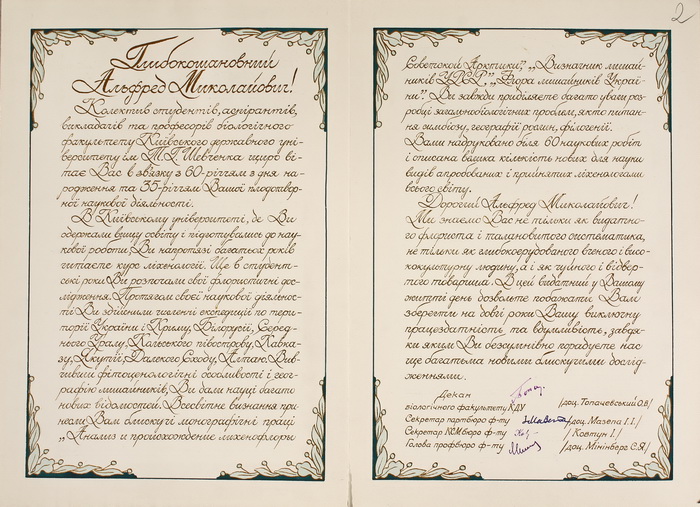 2
Глибокошановний
Альфред Миколайович!
Колектив студентів, аспірантів,
викладачів та професорів біологічного
факультету Київського державного уні-
верситету ім. Т.Г. Шевченка щиро ві-
тає Вас в зв'язку з 60-річчям з дня на-
родження та 35-річчям Вашої плодотвор-
ної наукової діяльності.
В Київському університеті, де Ви
одержали вищу освіту і підготувались до нау-
кової роботи, Ви напротязі багатьох років
читаєте курс ліхенології. Ще в студент-
ські роки Ви розпочали свої флористичні дос-
лідження. Протягом своєї наукової діяльнос-
ті Ви здійснили численні експедиції по тери-
торії України і Криму, Білорусії, Серед-
нього Уралу, Кольського півострову, Кавка-
зу, Якутії, Далекого Сходу, Алтаю. Вив-
чивши фітоценологічні особливості і геог-
рафію лишайників, Ви дали науці багато
нових відомостей. Всесвітнє визнання при-
несли Вам блискучі монографічні праці
„Анализ и происхождение лихенофлоры
Советской Арктики", „Визначник лишай-
ників УРСР", „Флора лишайників Украї-
ни". Ви завжди приділяєте багато уваги роз-
робці загальнобіологічних проблем, як то питан-
ня симбіозу, географії рослин, філогенії.
Вами надруковано біля 60 наукових робіт
і описана велика кількість нових для науки
видів апробованих і принятих ліхенологами
всього світу.
Дорогий Альфред Миколайович!
Ми знаємо Вас не тільки як видатно-
го флориста і талановитого систематика,
не тільки як глибокоерудованого вченого і висо-
кокультурну людину, а і як чуйного і відвер-
того товариша. В цей видатний у Вашому
житті день дозвольте побажати Вам
зберегти на довгі роки Вашу виключну
працездатність та вдумливість, завдя-
ки яким Ви безсумнівно порадуєте нас
ще багатьма новими блискучими дослід-
женнями.
Декан
біологічного факультету КДУ /доц. Топачевський О.В/
Секретар партбюро ф-ту /доц. Мазепа І.І./
Секретар КСМ бюро ф-ту /Ковтун І./
Голова профбюро ф-ту /доц. Мінінберг С.Я/